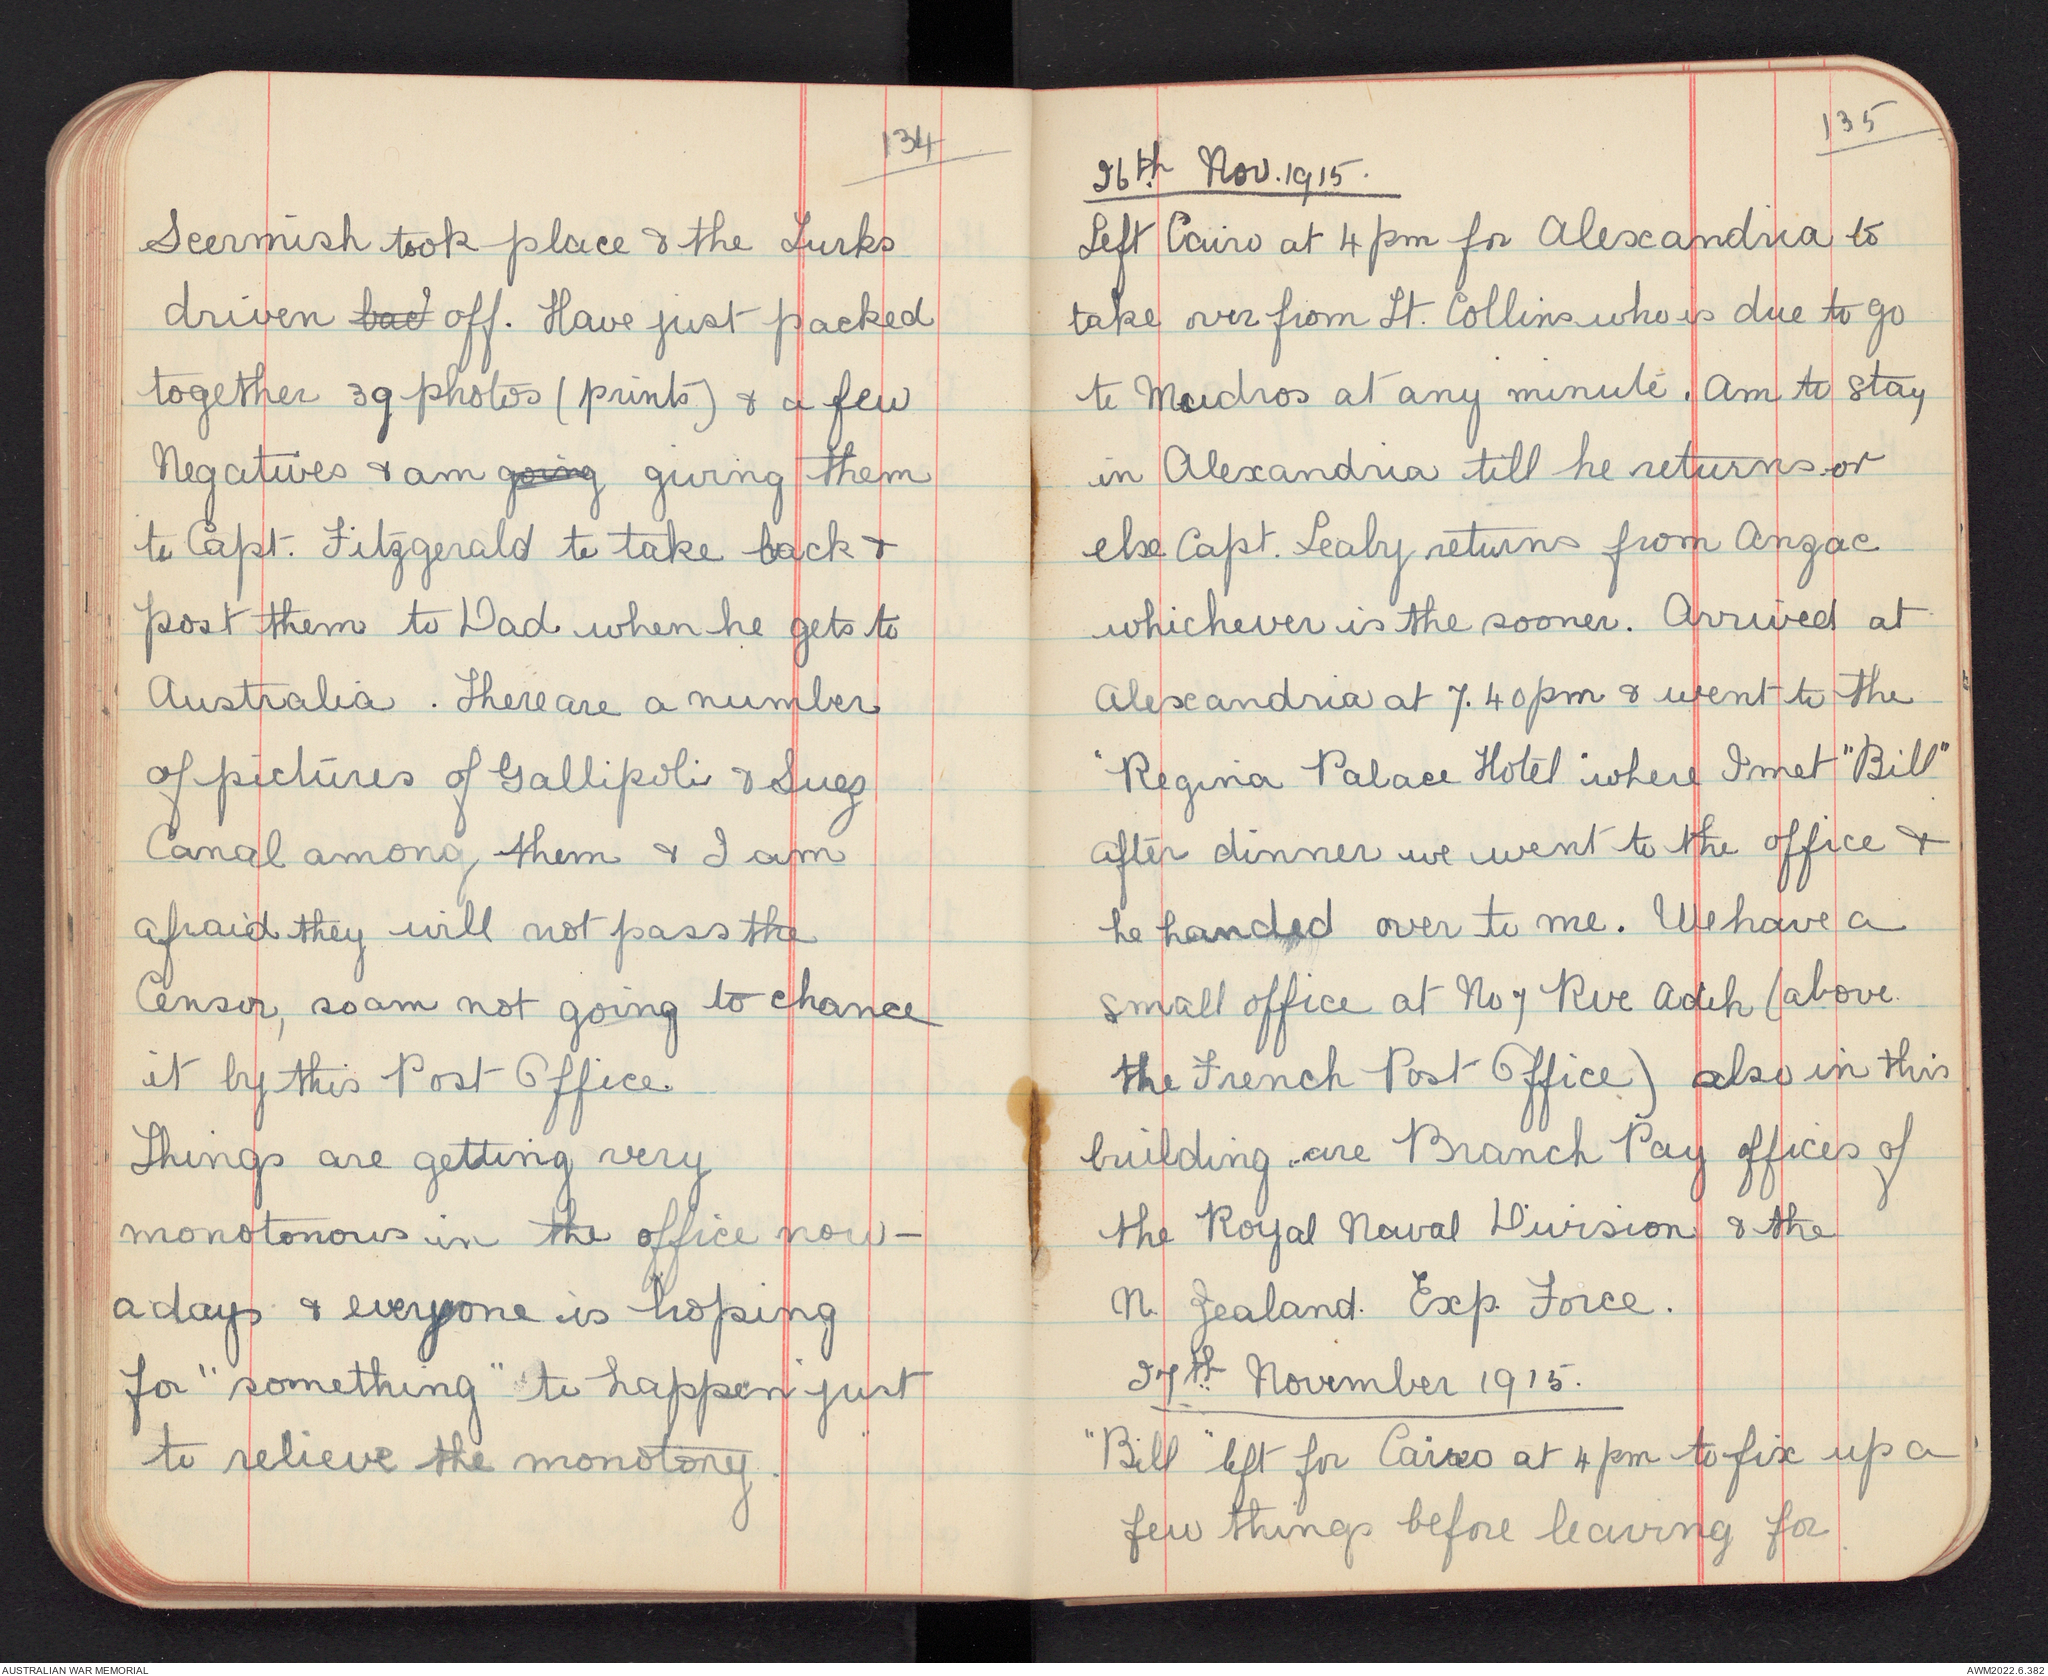 134
Scermish took place & the Turks
driven bac off. Have just packed
together 39 photos (prints) & a few
Negatives & am going giving them
to Capt. Fitzgerald to take back &
post them to Dad when he gets to
Australia. There are a number
of pictures of Gallipoli & Suez
Canal among them & I am
afraid they will not pass the
Censor, so am not going to chance
it by this Post Office.
Things are getting very
monotonous in the office now-
adays & everyone is hoping
for "something" to happen just
to relieve the monotony.
135
26th Nov. 1915.
Left Cairo at 4 pm for Alexandria to
take over from Lt. Collins who is due to go
to Mudros at any minute. Am to stay
in Alexandria till he returns or
else Capt. Leahy returns from Anzac
whichever is the sooner. Arrived at
Alexandria at 7.40pm & went to the
"Regina Palace Hotel" where I met "Bill"
after dinner we went to the office &
he handed over to me. We have a
small office at No 7 Rue Adib (above
the French Post Office) also in this
building are Branch Pay offices of
the Royal Naval Division & the
N. Zealand. Exp. Force.
27th November 1915.
"Bill" left for Cairo at 4 pm to fix up a
few things before leaving for
AUSTRALIAN WAR MEMORIAL
AWM2022.6.382